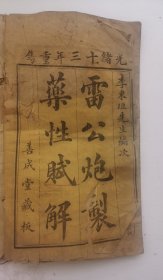 光緒十三年重鐫
李東垣先生編次
雷公炮製
藥性賦解
善成堂藏板